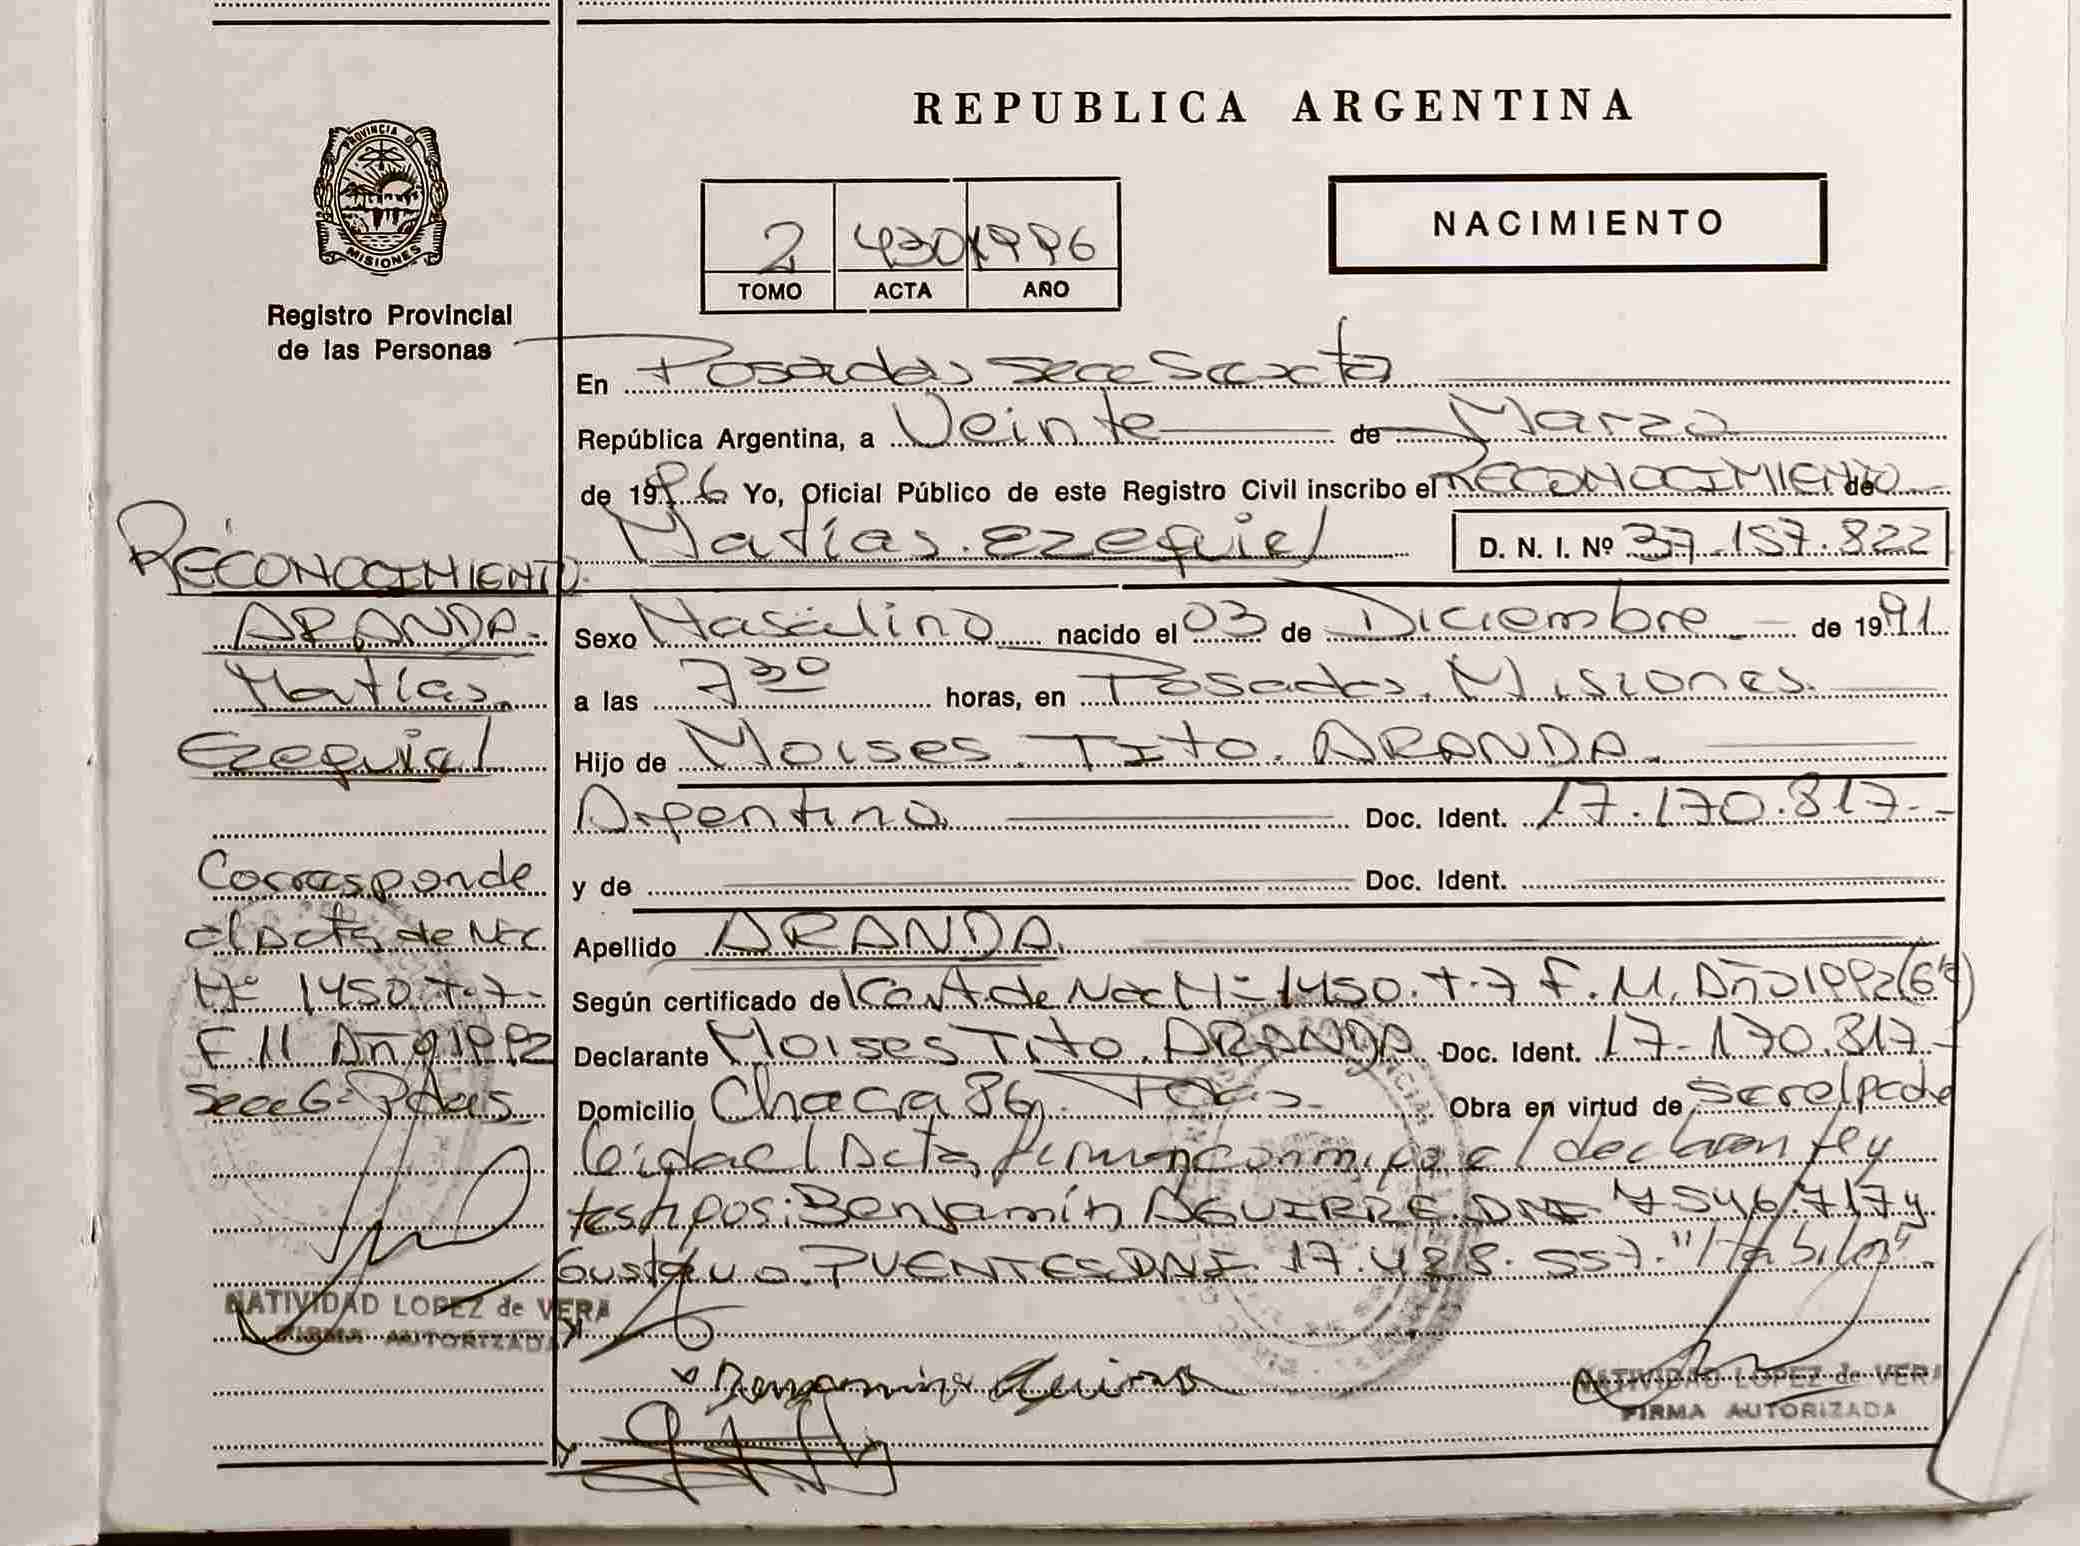 REPUBLICA ARGENTINA
PROVINCIA DE
MISIONES
Registro Provincial
de las Personas
2 430 1996
TOMO ACTA AÑO
NACIMIENTO
En Posadas Secc Sexta
República Argentina, a Veinte de Marzo
de 1996 Yo, Oficial Público de este Registro Civil inscribo el RECONOCIMIENTO de
Matías Ezequiel D. N. I. Nº 37.157.822
Sexo Masculino nacido el 03 de Diciembre de 1991
a las 7 30 horas, en Posadas. Misiones.
Hijo de Moises Tito ARANDA
Argentina Doc. Ident. 17.170.817.-
y de Doc. Ident.
Apellido ARANDA
Según certificado de Acta de Nac Nº 1450.T.7 F.11. Año 1992 (6ª)
Declarante Moises Tito ARANDA Doc. Ident. 17.170.817.-
Domicilio Chacra 86 Obra en virtud de ser el padre
leida el Acta, firman conmigo el declarante y
testigos: Benjamín AGUIRRE DNI 7546717 y
Gustavo PUENTES DNI 17.428.557.
NATIVIDAD LOPEZ de VERA
FIRMA AUTORIZADA
RECONOCIMIENTO
ARANDA
Matías
Ezequiel
Corresponde
al Acta de Nac
Nº 1450.T.7-
F.11 Año 1992
Secc 6ª Pdas
NATIVIDAD LOPEZ de VERA
FIRMA AUTORIZADA